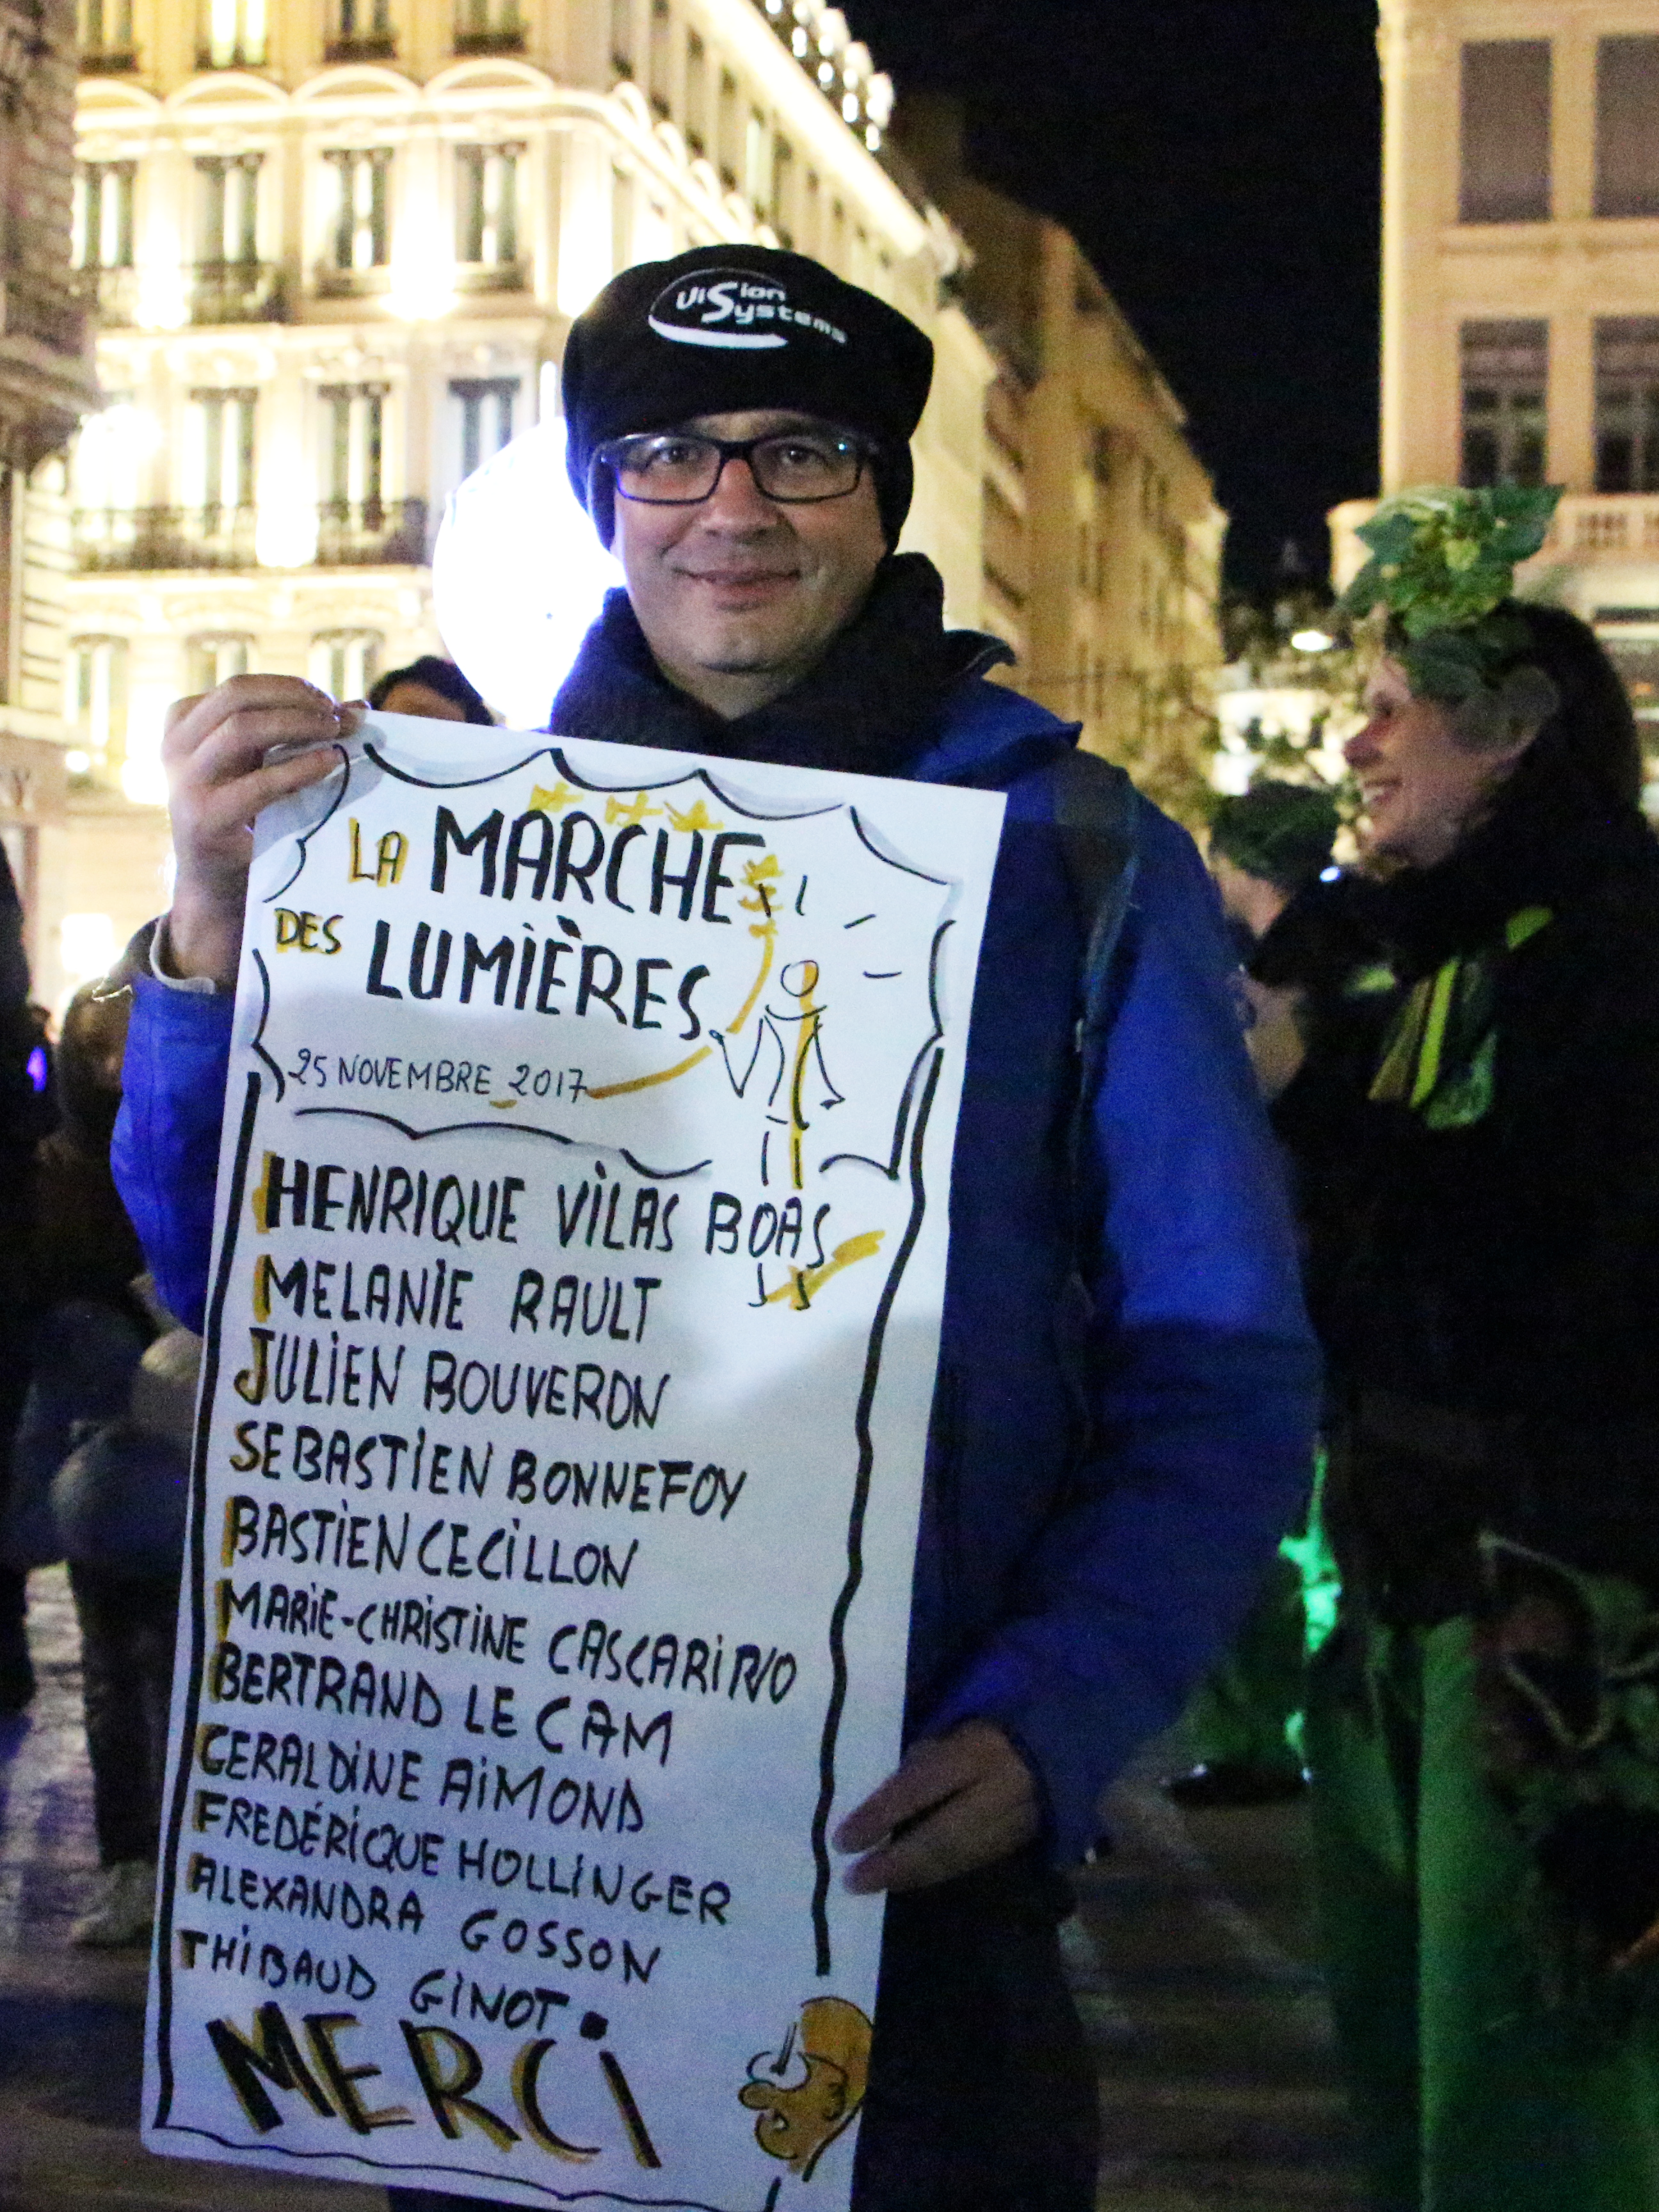 Vision
Systems
LA MARCHE
DES LUMIÈRES
25 NOVEMBRE 2017
HENRIQUE VILAS BOAS
MELANIE RAULT
JULIEN BOUVERON
SEBASTIEN BONNEFOY
BASTIEN CECILLON
MARIE-CHRISTINE CASCARINO
BERTRAND LE CAM
GERALDINE AIMOND
FREDÉRICQUE HOLLINGER
ALEXANDRA GOSSON
THIBAUD GINOT.
MERCI